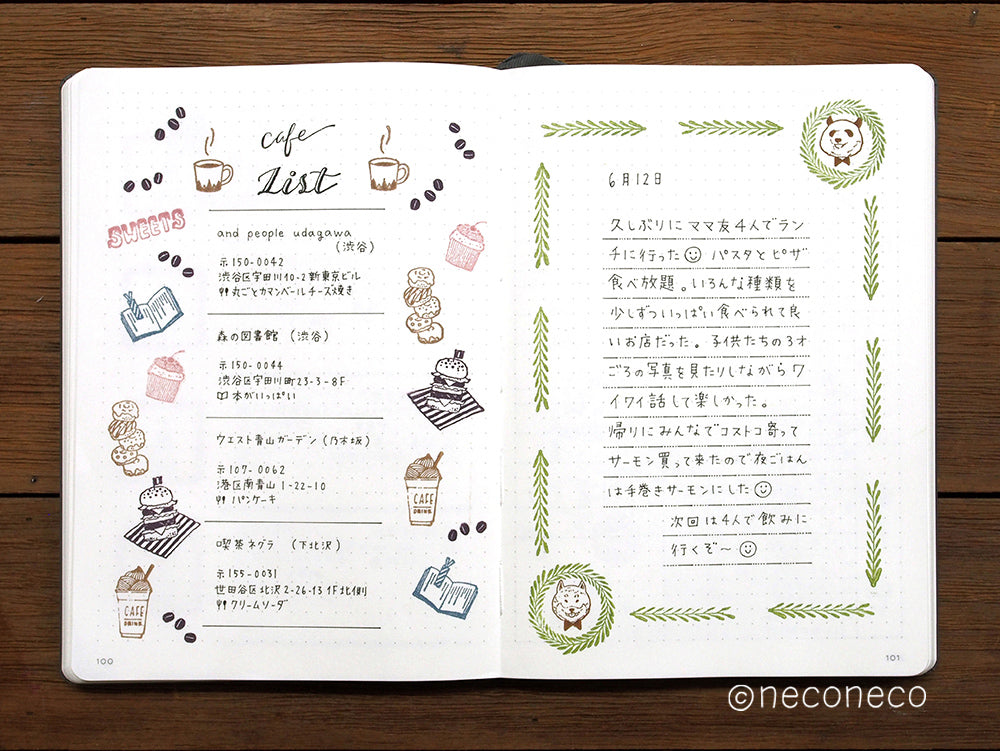 cafe
List
SWEETS
and people udagawa
(渋谷)
〒150-0042
渋谷区宇田川10-2新東京ビル
丸ごとカマンベールチーズ焼き
森の図書館 (渋谷)
〒150-0044
渋谷区宇田川町23-3-8F
本がいっぱい
ウエスト青山ガーデン(乃木坂)
〒107-0062
港区南青山1-22-10
パンケーキ
喫茶ネグラ (下北沢)
〒155-0031
世田谷区北沢2-26-13 1F北側
クリームソーダ
CAFE
DRINK
CAFE
DRINK
100
6月12日
久しぶりにママ友4人でラン
チに行った☺ パスタとピザ
食べ放題。いろんな種類を
少しずついっぱい食べられて良
いお店だった。子供たちの3才
ごろの写真を見たりしながらワ
イワイ話して楽しかった。
帰りにみんなでコストコ寄って
サーモン買って来たので夜ごはん
は手巻きサーモンにした☺
次回は4人で飲みに
行くぞ〜☺
101
©neconeco